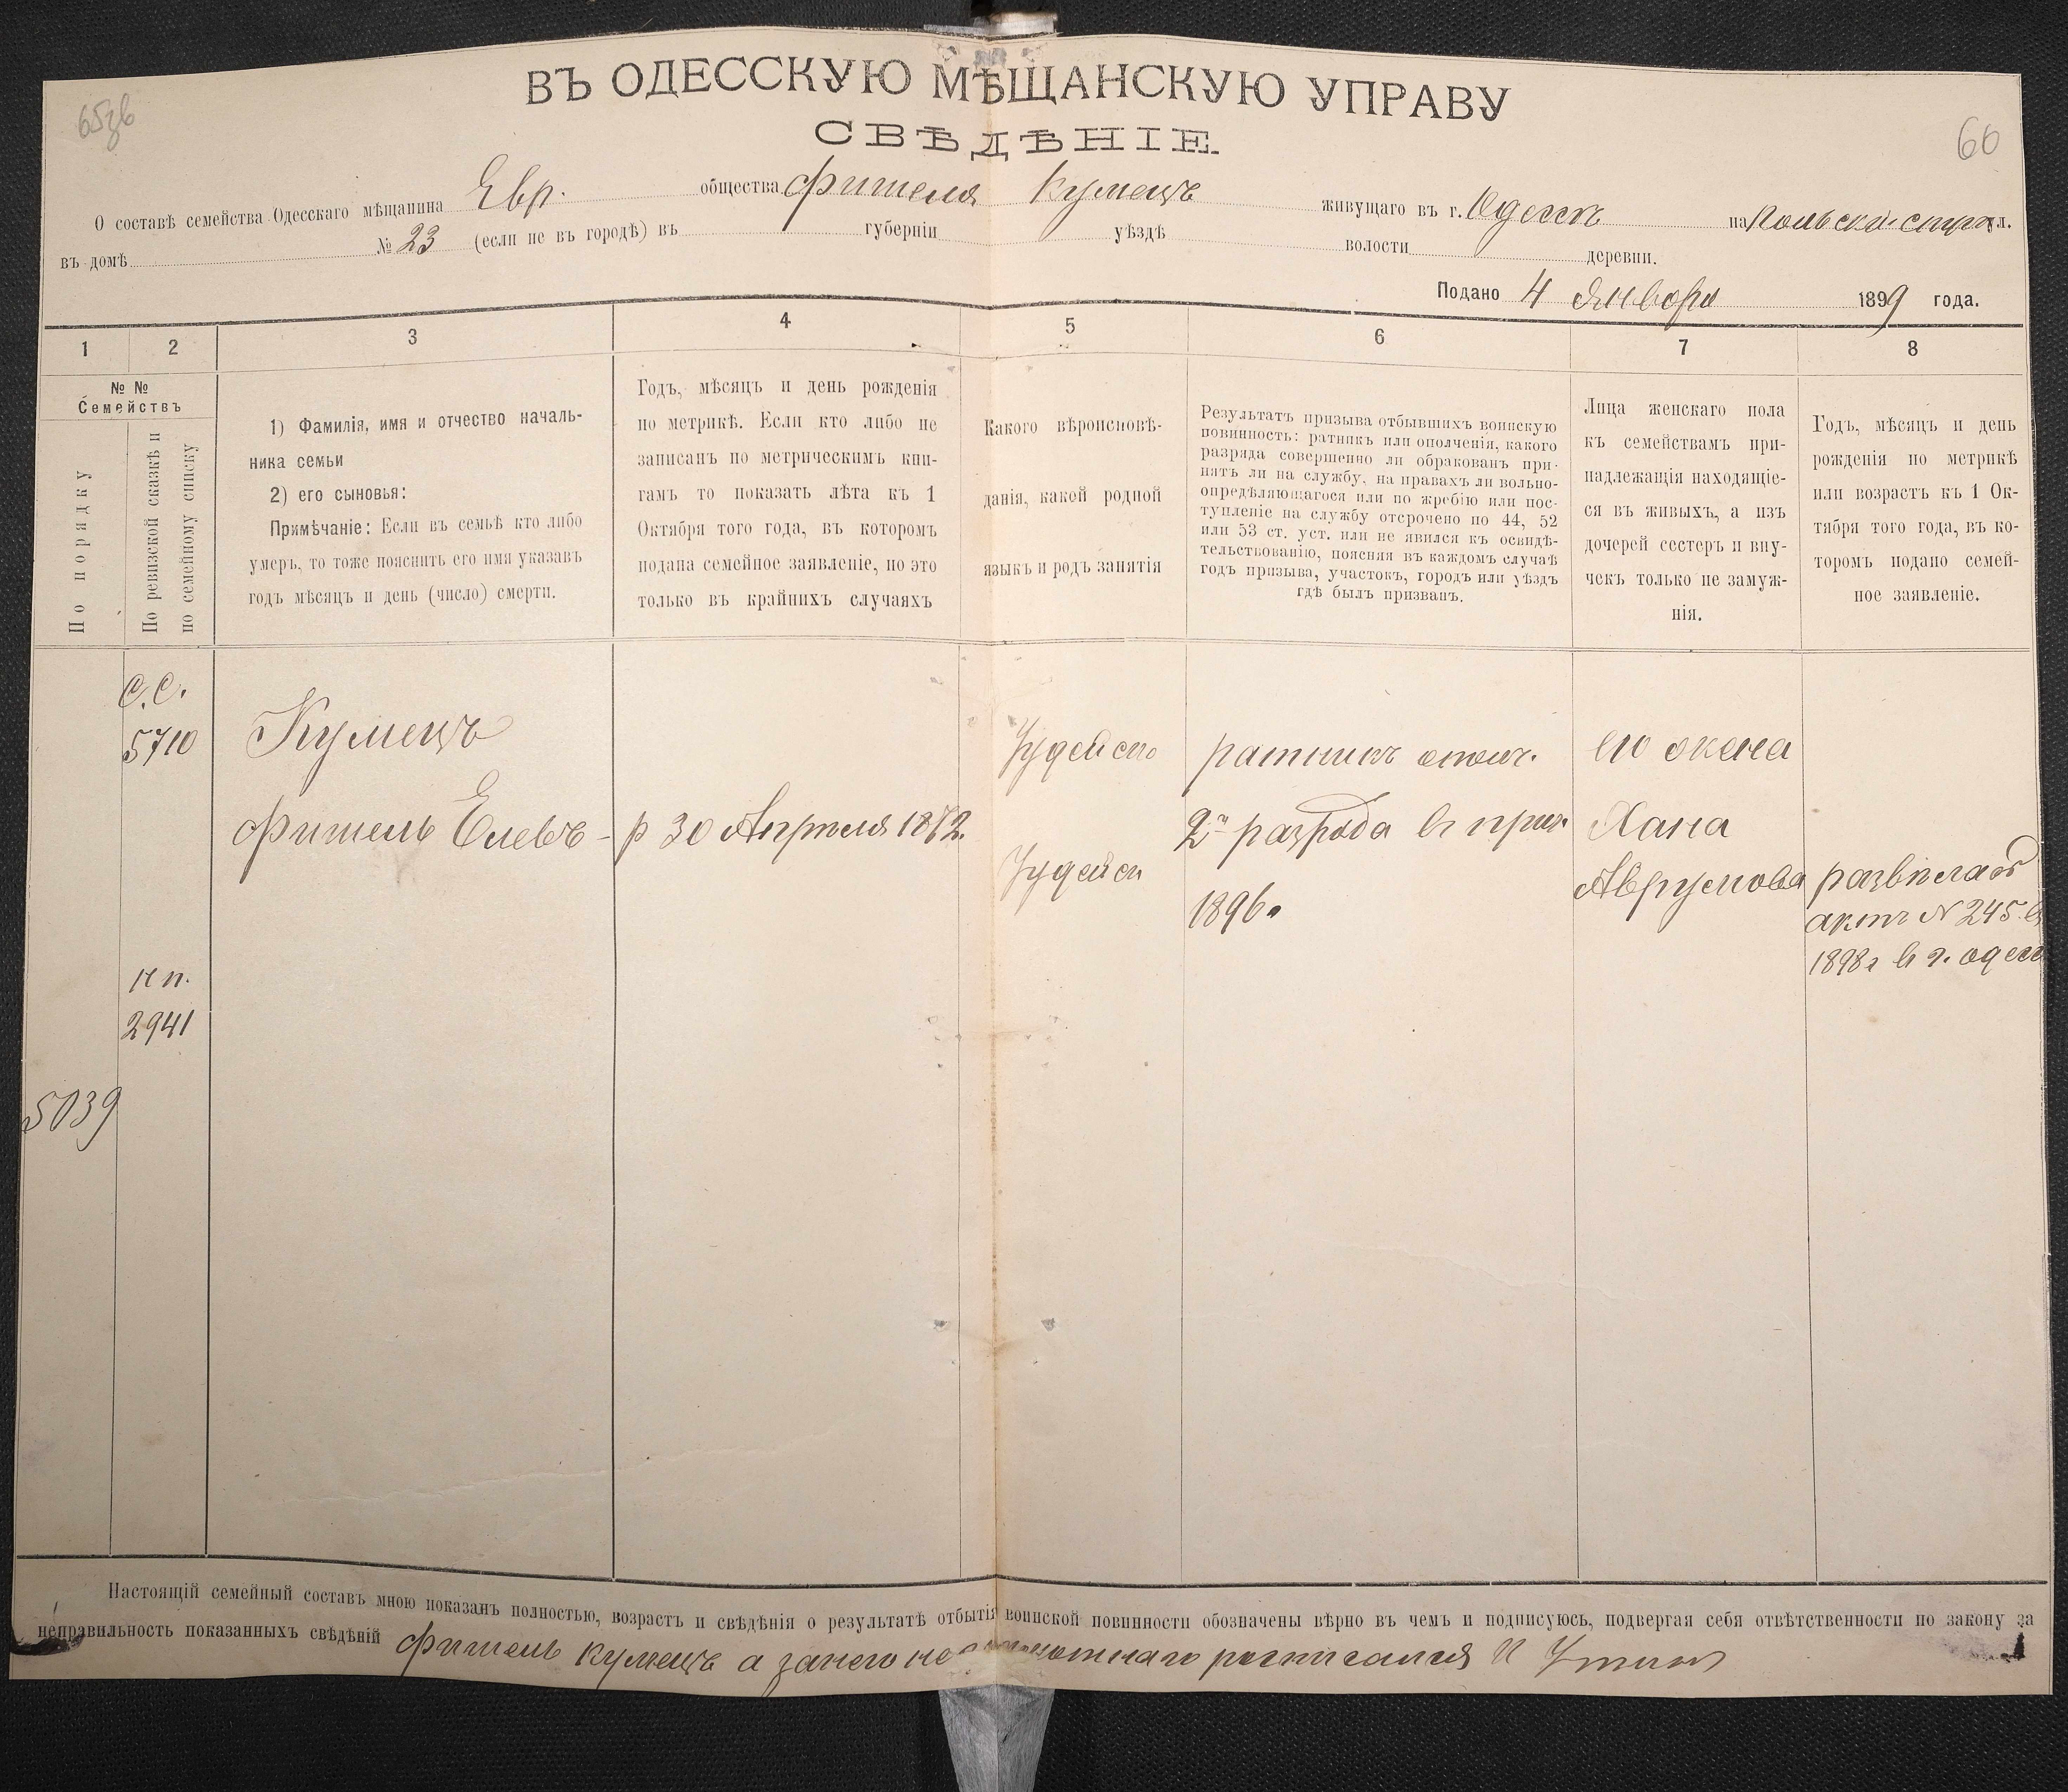 ВЪ ОДЕССКУЮ МѢЩАНСКУЮ УПРАВУ
СВѢДѢНІЕ.
60
О составѣ семейства Одесскаго мѣщанина Евр. общества Фишеля Кумецъ живущаго въ г. Одессѣ на Польской ул.
въ домѣ № 23 (если не въ городѣ) въ губерніи уѣздѣ волости деревни.
Подано 4 Января 1899 года.
1 2 3 4 5 6 7 8
№ №
Семействъ
По порядку
По ревизской сказкѣ и
по семейному списку
1) Фамилія, имя и отчество началь-
ника семьи
2) его сыновья:
Примѣчаніе: Если въ семьѣ кто либо
умеръ, то тоже пояснить его имя указавъ
годъ мѣсяцъ и день (число) смерти.
Годъ, мѣсяцъ и день рожденія
по метрикѣ. Если кто либо не
записанъ по метрическимъ кни-
гамъ то показать лѣта къ 1
Октября того года, въ которомъ
подана семейное заявленіе, но это
только въ крайнихъ случаяхъ
Какого вѣроисповѣ-
данія, какой родной
языкъ и родъ занятія
Результатъ призыва отбывшихъ воинскую
повинность: ратникъ или ополченія, какого
разряда совершенно ли обракованъ при-
нятъ ли на службу, на правахъ ли вольно-
опредѣляющагося или по жребію или пос-
тупленіе на службу отсрочено по 44, 52
или 53 ст. уст. или не явился къ освидѣ-
тельствованію, поясняя въ каждомъ случаѣ
годъ призыва, участокъ, городъ или уѣздъ
гдѣ былъ призванъ.
Лица женскаго пола
къ семействамъ при-
надлежащія находящіе-
ся въ живыхъ, а изъ
дочерей сестеръ и вну-
чекъ только не замуж-
нія.
Годъ, мѣсяцъ и день
рожденія по метрикѣ
или возрастъ къ 1 Ок-
тября того года, въ ко-
торомъ подано семей-
ное заявленіе.
С.С.
5710
Кумецъ
Фишель Елевъ - р 30 Апрѣля 1872.
Іудейско
Іудейск
ратникъ ополч.
2го разряда въ приз
1896.
его жена
Хана
Аврумова
развѣлась
актъ № 245 въ
1898 г въ г. Одесс
нп.
2941
5039
Настоящій семейный составъ мною показанъ полностью, возрастъ и свѣдѣнія о результатѣ отбытія воинской повинности обозначены вѣрно въ чемъ и подписуюсь, подвергая себя отвѣтственности по закону за
неправильность показанныхъ свѣдѣній Фишель Кумецъ а занего неграмотнаго росписался